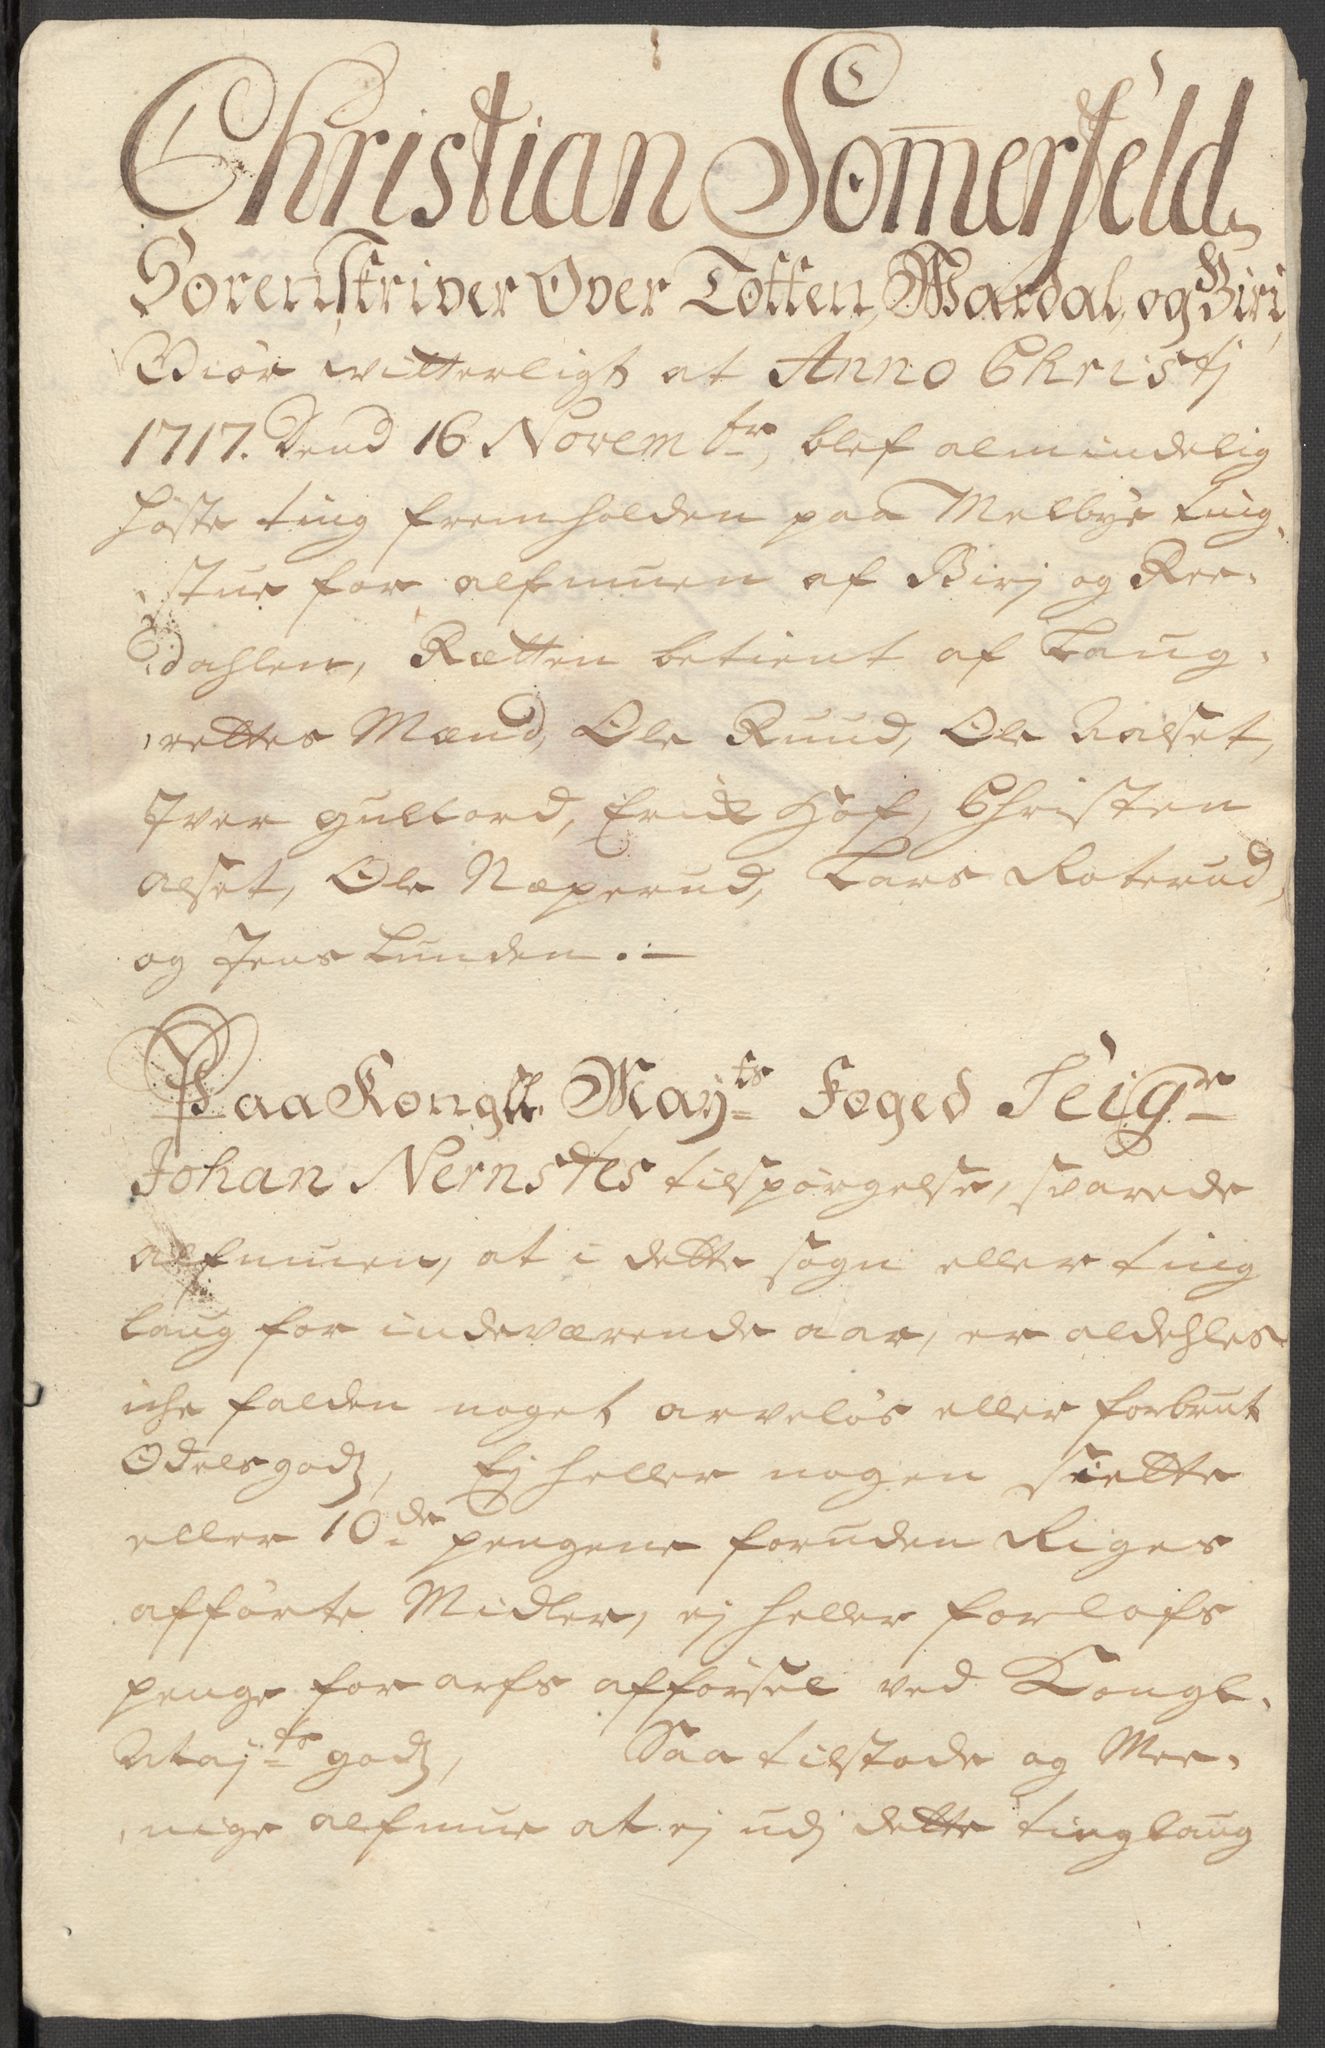 Christian Som̅erfeld
Sorenskriver Over Totten, Wardal, og Biri,
Giør witterligt at Anno Christj
1717. Dend 16 Novembr, blef almindelig
høste ting fremholden paa Melbye ting-
stue for alfmuen af Birj og Ree-
dahlen, Rætten betient af Laug-
rettes Mænd, Ole Ruud, Ole Aalset,
Iver gullord, Erick Hof, Christen
alset, Ole Næperud, Lars Roterud,
og Jens Lunden.—
Paa Kongll. Mayts Foged Seigr
Johan Nernstes tilspørgelse, svarede
alfmuen, at i dette sogn eller ting
laug for indeværende aar, er aldehles
iche falden noget arveløs eller forbrut
Odelsgodz, Ej heller nogen siette
eller 10de pengene foruden Riges
afførte Midler, ej heller forlofs
penge for arfs afførsel ved Kongl.
Majts godz, Saa tilstode og Mee-
nige alfmue at ej udj dette tinglaug